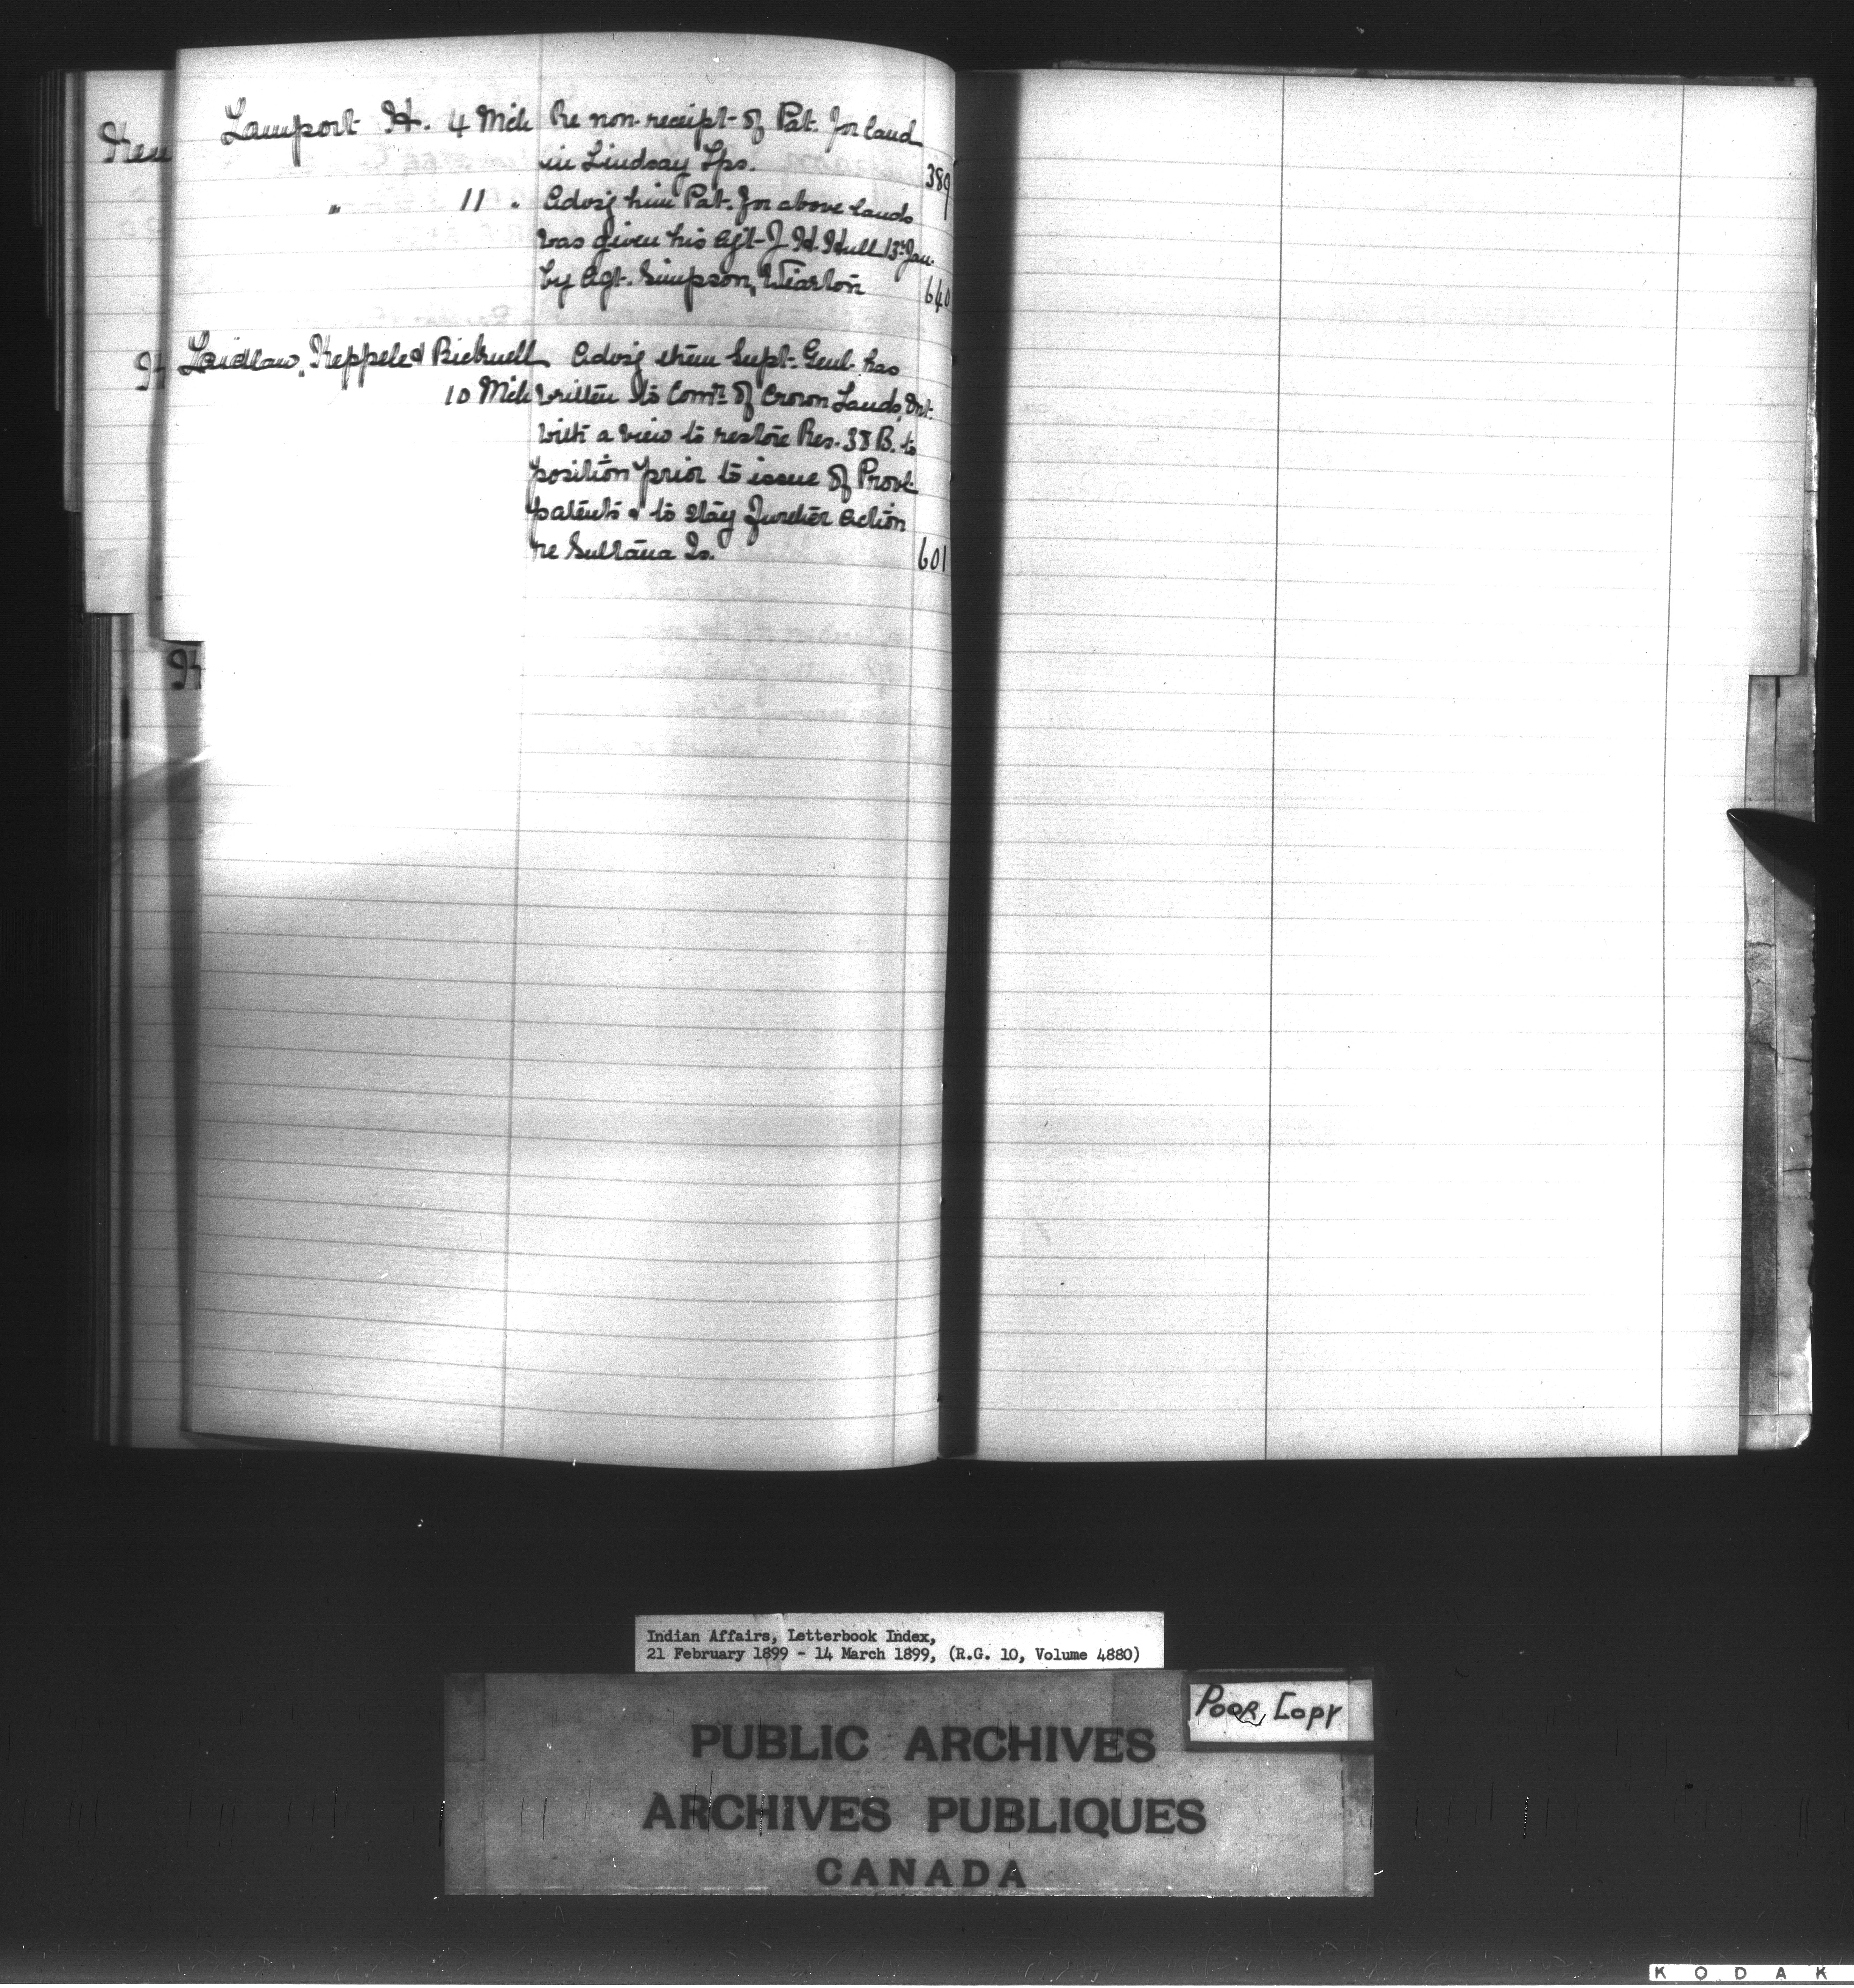 Lamport H. 4 Mch Re non-receipt of Pat. for land
in Lindsay Tps. 389
" 11 " Advsg him Pat. for above lands
was given his Agt J. H. Hull 13th Jan.
by Agt. Simpson, Wiarton 640
Laidlaw, Kappele & Bicknell Advsg them Supt. Genl. has
10 Mch written to Comr. of Crown Lands, Ont.
with a view to restore Res. 38 B. to
position prior to issue of Provl
patents & to stay further action
re Sultana Is. 601
Indian Affairs, Letterbook Index,
21 February 1899 - 14 March 1899, (R.G. 10, Volume 4880)
Poor Copy
PUBLIC ARCHIVES
ARCHIVES PUBLIQUES
CANADA
KODAK